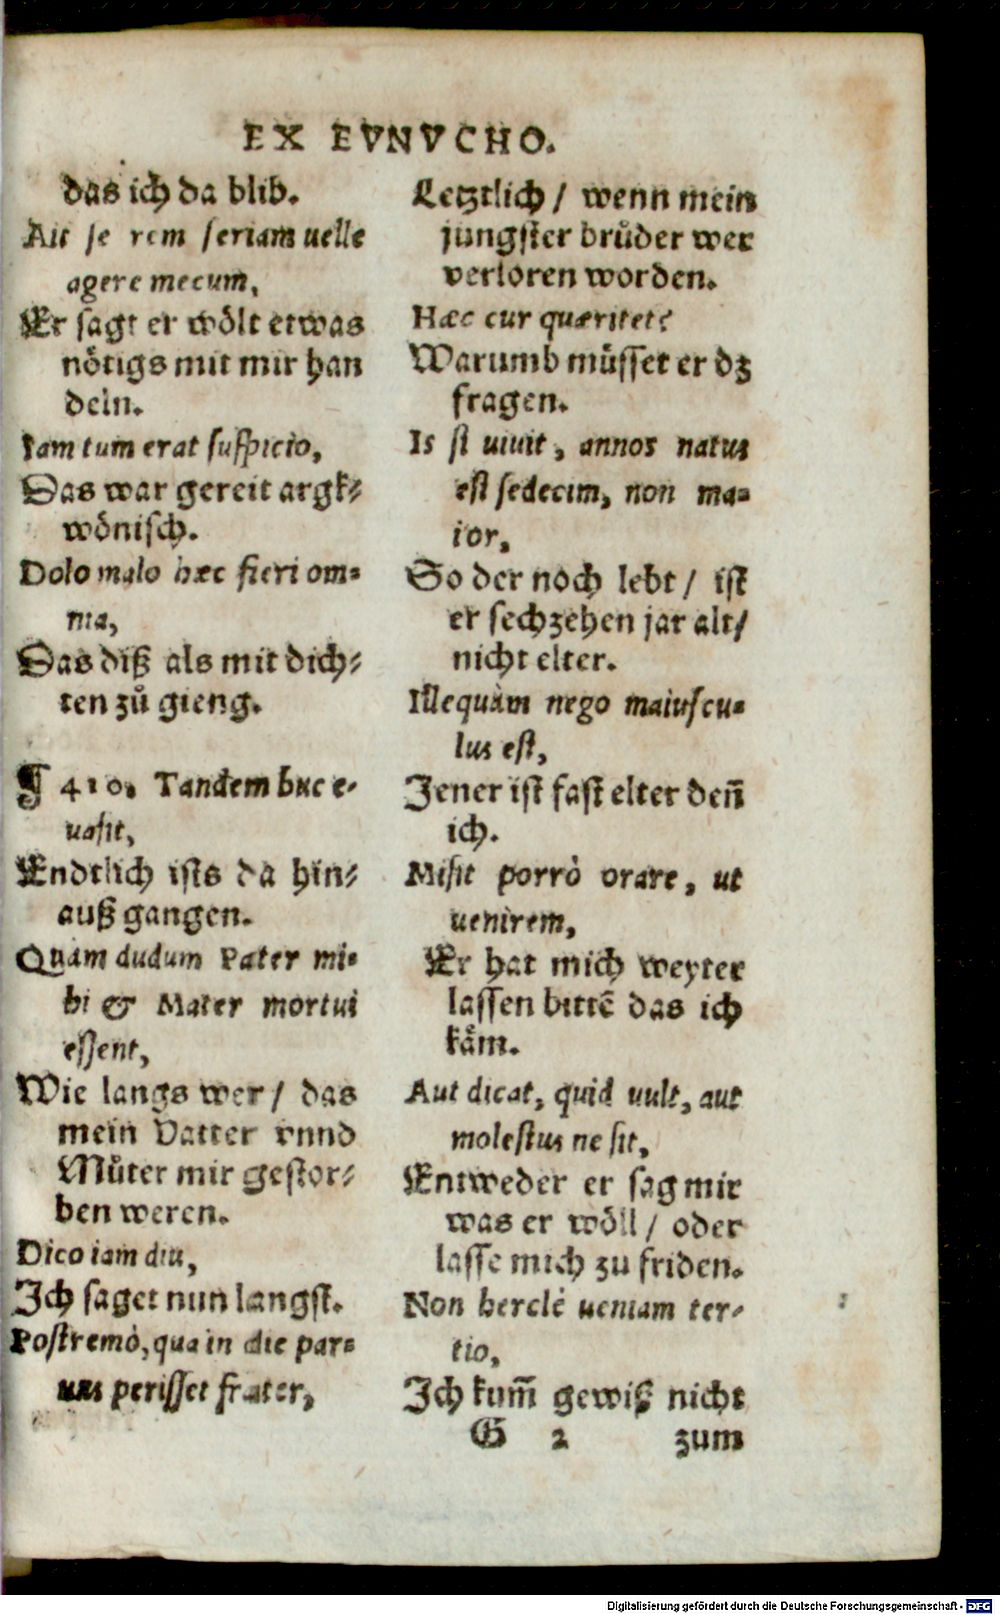 EX EVNVCHO.
das ich da blib.
Ait se rem seriam uelle
agere mecum,
Er sagt er wölt etwas
nötigs mit mir han
deln.
Iam tum erat suspicio,
Das war gereit argk⸗
wönisch.
Dolo malo hæc fieri om⸗
nia,
Das diß als mit dich⸗
ten zů gieng.
¶ 410. Tandem huc e⸗
uasit,
Endtlich ists da hin⸗
auß gangen.
Quàm dudum Pater mi⸗
hi & Mater mortui
essent,
Wie langs wer / das
mein Vatter vnnd
Můter mir gestor⸗
ben weren.
Dico iam diu,
Ich saget nun langst.
Postremò, qua in die par⸗
uus perisset frater,
Letztlich / wenn mein
jungster brůder wer
verloren worden.
Hæc cur quæritet?
Warumb müsset er dz
fragen.
Is si uiuit, annos natus
est sedecim, non ma⸗
ior,
So der noch lebt / ist
er sechzehen jar alt /
nicht elter.
Ille quàm nego maiuscu⸗
lus est,
Jener ist fast elter deñ
ich.
Misit porrò orare, ut
uenirem,
Er hat mich weyter
lassen bittē das ich
käm.
Aut dicat, quid uult, aut
molestus ne sit,
Entweder er sag mir
was er wöll / oder
lasse mich zu friden.
Non herclè ueniam ter⸗
tio,
Ich kum̄ gewiß nicht
G 2 zum
Digitalisierung gefördert durch die Deutsche Forschungsgemeinschaft - DFG